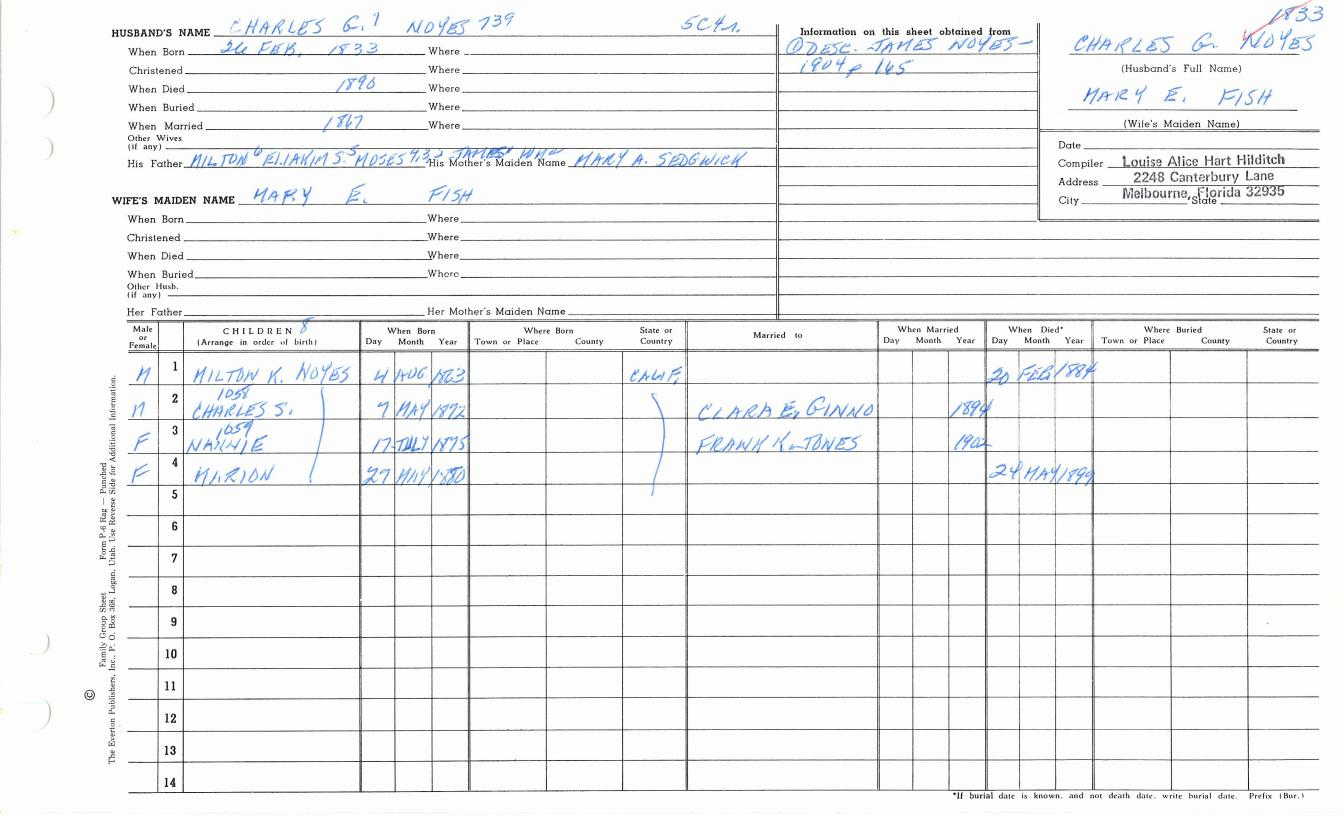 1833
HUSBAND'S NAME CHARLES G.7 NOYES 739 5C4r.
When Born 26 FEB, 1833 Where
Christened Where
When Died 1890 Where
When Buried Where
When Married 1867 Where
Other Wives
(if any)
His Father MILTON 6 ELIAKIM S.5 MOSES 4,3,2 JAMES' WM His Mother's Maiden Name MARY A. SEDGWICK
WIFE'S MAIDEN NAME MARY E. FISH
When Born Where
Christened Where
When Died Where
When Buried Where
Other Husb.
(if any)
Her Father Her Mother's Maiden Name
Information on this sheet obtained from
① DESC. JAMES NOYES—
1904 p 165
CHARLES G. NOYES
(Husband's Full Name)
MARY E. FISH
(Wife's Maiden Name)
Date
Compiler Louise Alice Hart Hilditch
Address 2248 Canterbury Lane
City Melbourne, Florida 32935 State
Male or Female CHILDREN 8 (Arrange in order of birth) When Born Day Month Year Where Born Town or Place County State or Country Married to When Married Day Month Year When Died* Day Month Year Where Buried Town or Place County State or Country
M 1 MILTON K. NOYES 4 AUG 1863 CALIF. 20 FEB 1884
1058
M 2 CHARLES S. 7 MAY 1872 CLARA E. GINNO 1894
1059
F 3 NANNIE 17 JULY 1875 FRANK K. JONES 1902
F 4 MARION 27 MAY 1880 24 MAY 1899
5
6
7
8
9
10
11
12
13
14
*If burial date is known, and not death date, write burial date. Prefix (Bur.)
© Family Group Sheet Form P-6 Rag — Punched
The Everton Publishers, Inc., P. O. Box 368, Logan, Utah. Use Reverse Side for Additional Information.